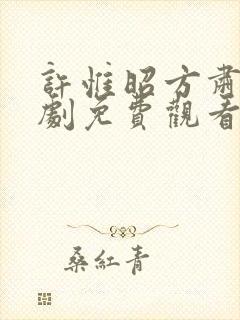 許惟昭方肅
劇免費觀看
桑紅青